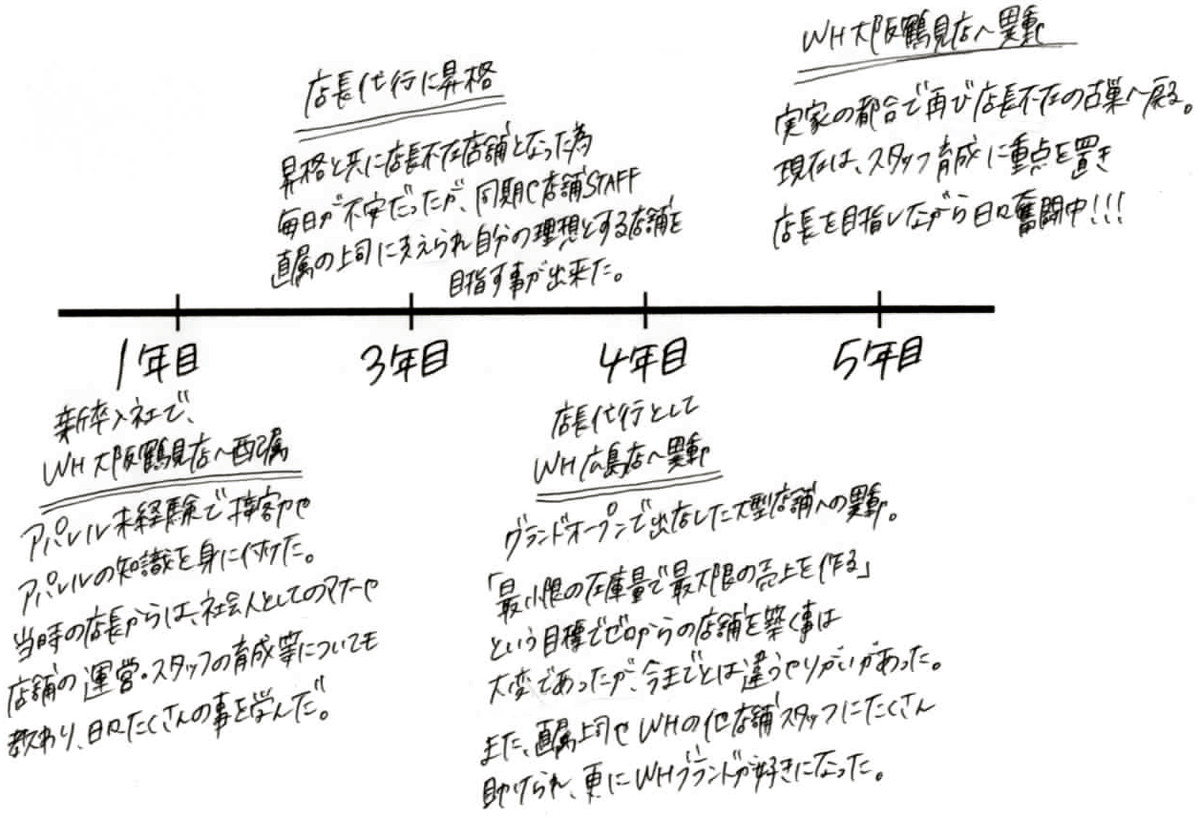 WH大阪鶴見店へ異動
実家の都合で再び店長不在の古巣へ戻る。
現在は、スタッフ育成に重点を置き
店長を目指しながら日々奮闘中!!!
店長代行に昇格
昇格と共に店長不在店舗となった為
毎日が不安だったが、同期や店舗STAFF
直属の上司に支えられ自分の理想とする店舗を
目指す事が出来た。
1年目
3年目
4年目
5年目
新卒入社で、
WH大阪鶴見店へ配属
アパレル未経験で接客や
アパレルの知識を身に付けた。
当時の店長からは、社会人としてのマナーや
店舗の運営・スタッフの育成等についても
教わり、日々たくさんの事を学んだ。
店長代行として
WH広島店へ異動
グランドオープンで出店した大型店舗への異動。
「最小限の在庫量で最大限の売上を作る」
という目標でゼロからの店舗を築く事は
大変であったが、今までとは違うやりがいがあった。
また、直属上司やWHの他店舗スタッフにたくさん
助けられ、更にWHブランドが好きになった。